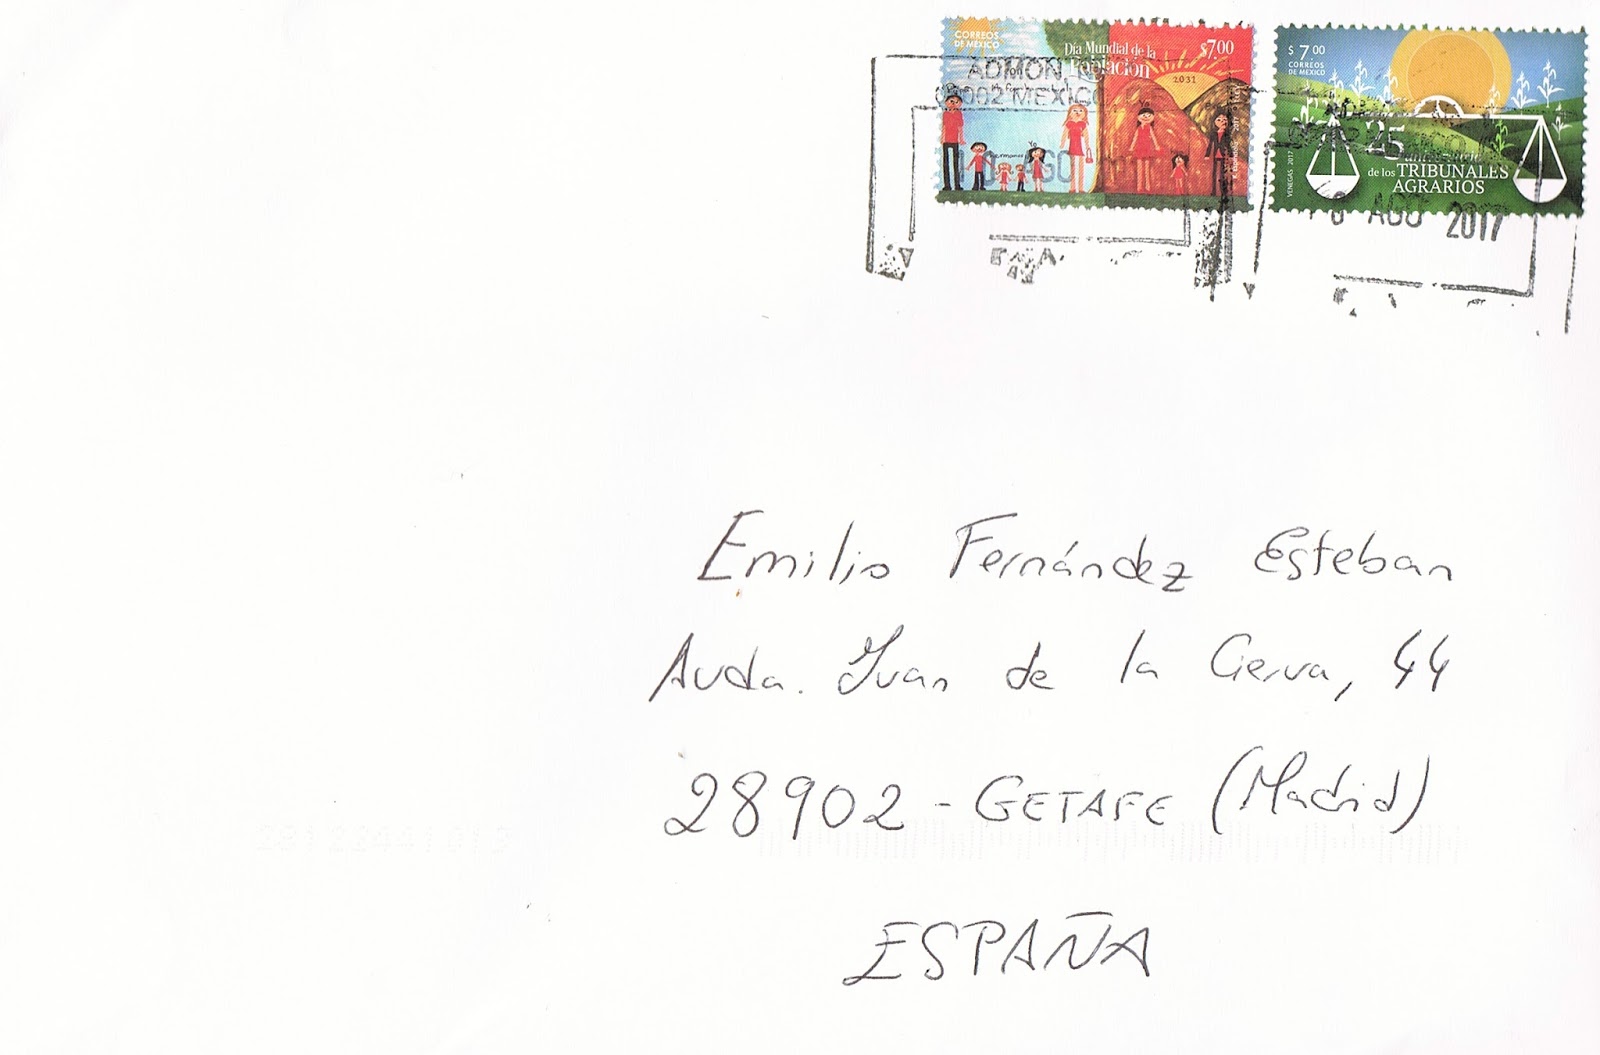 CORREOS
DE MEXICO
Día Mundial de la
Población
$7.00
2031
Yo
$ 7.00
CORREOS
DE MEXICO
25
de los TRIBUNALES
AGRARIOS
VENEGAS 2017
ADMON.
MEXICO
AGO
AGO 2017
Emilio Fernández Esteban
Avda. Juan de la Cierva, 44
28902 - GETAFE (Madrid)
ESPAÑA